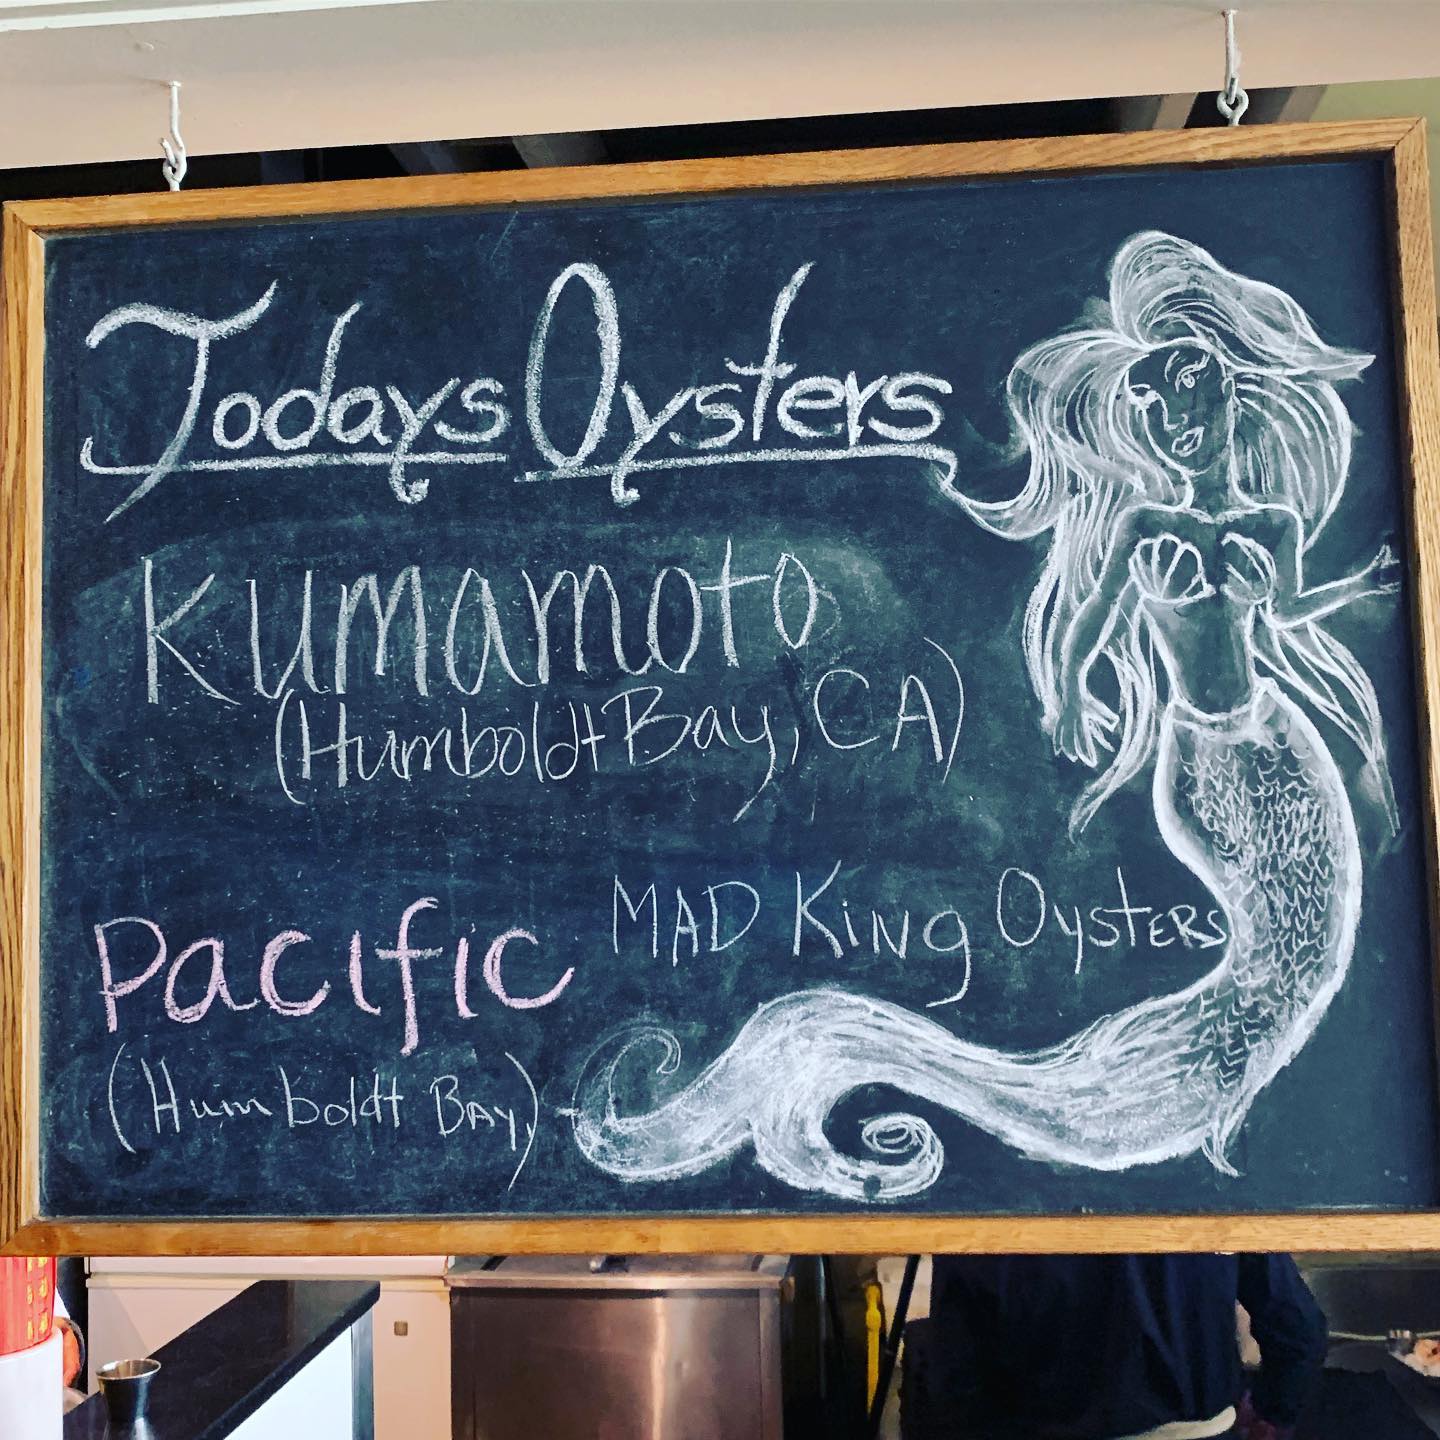 Todays Oysters
Kumamoto
(Humboldt Bay, CA)
Pacific MAD King Oysters
(Humboldt Bay)